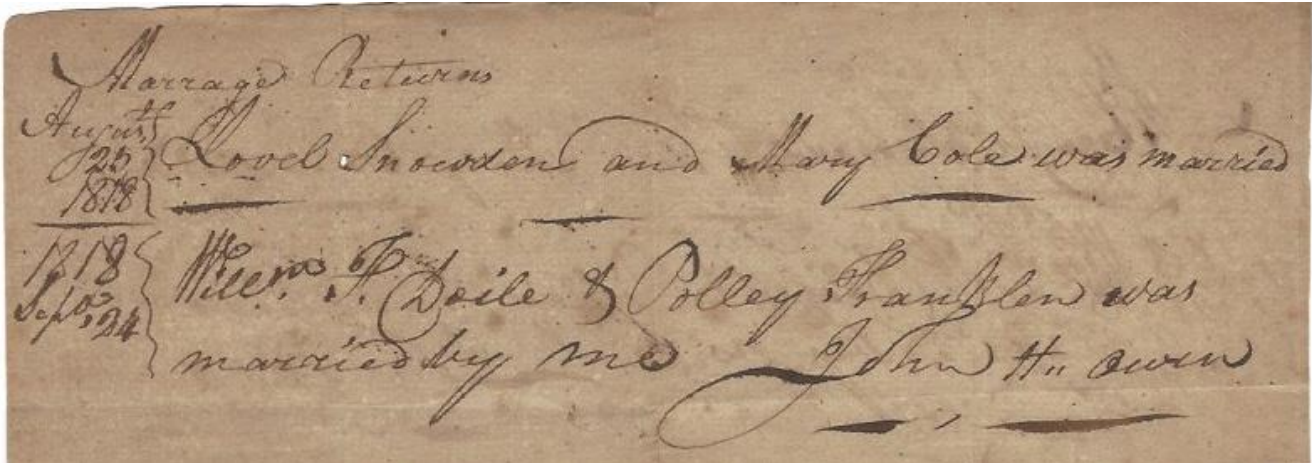 Marrage Returns
August
25
1818
Lovel Snowden and Mary Cole was married
1818
Sept 24
Willm. F. Doile & Polley Franklen was
married by me John H. Owen